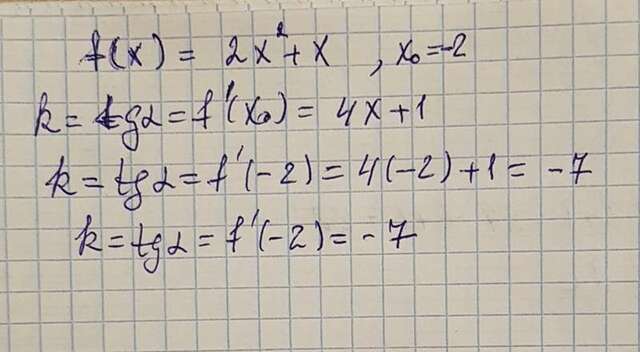 f(x) = 2x²+x , x₀=-2
k = tgα = f'(x₀) = 4x+1
k = tgα = f'(-2) = 4(-2)+1 = -7
k = tgα = f'(-2) = -7